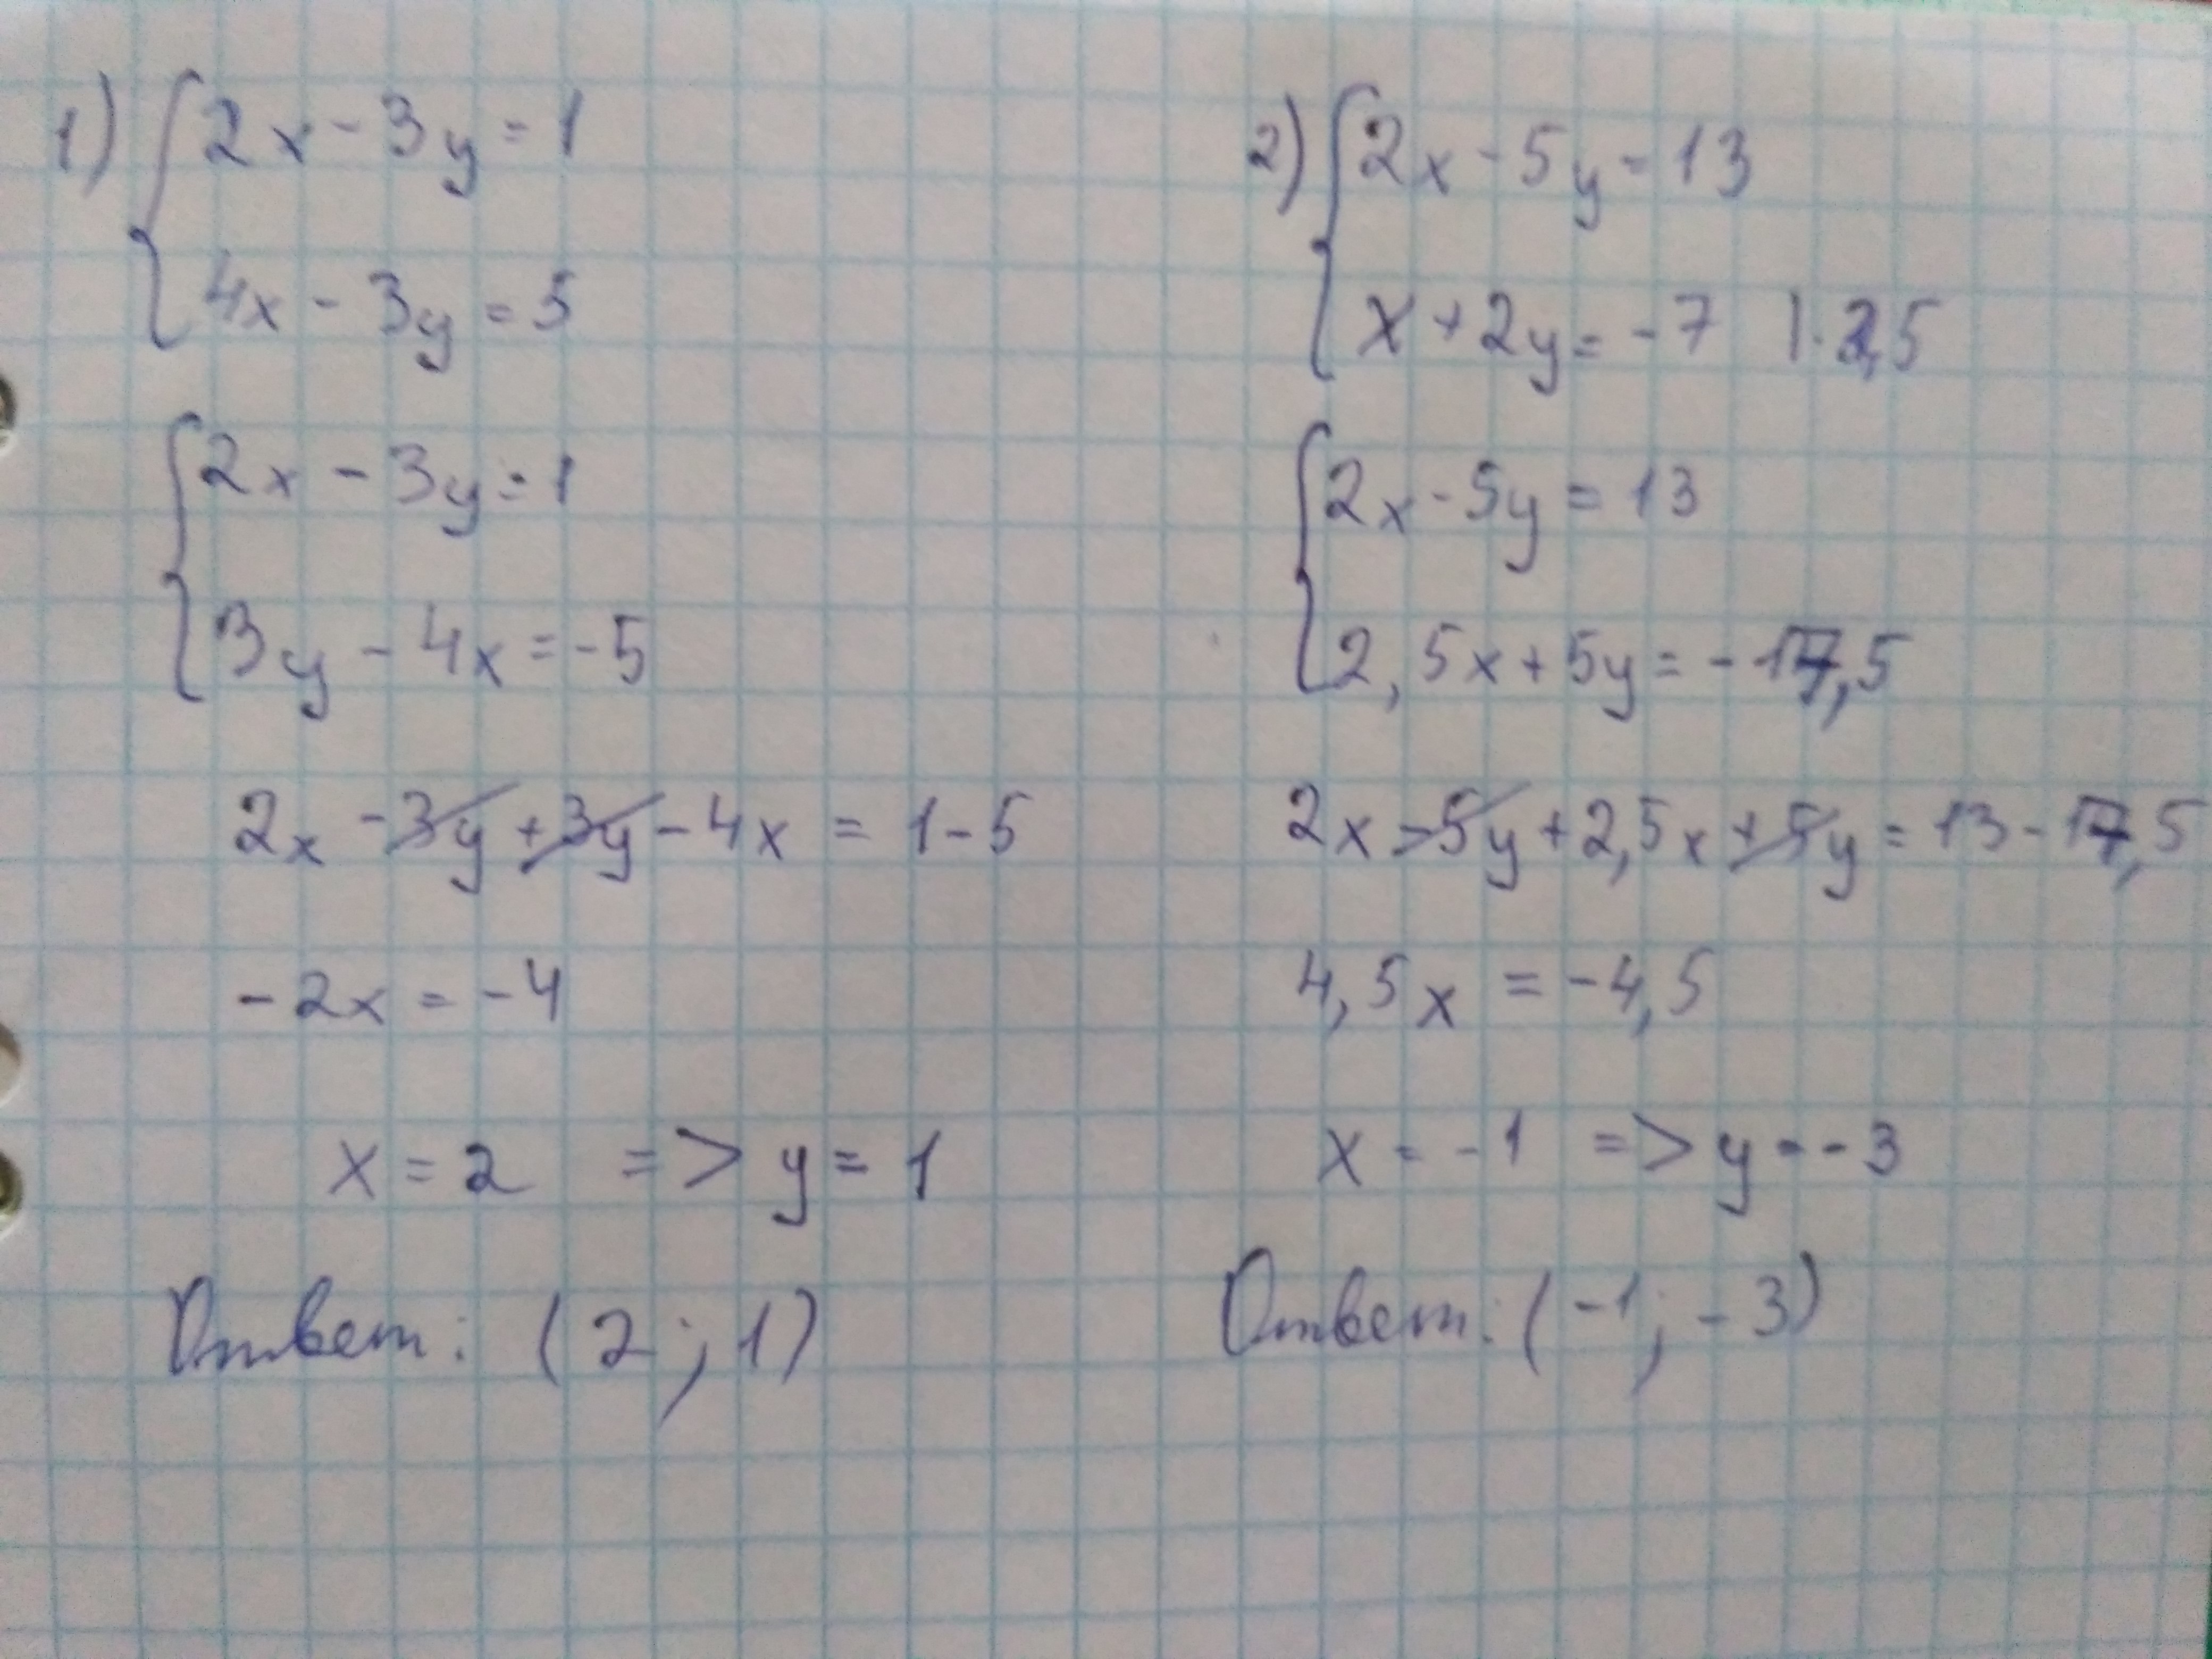 1) 2x - 3y = 1
4x - 3y = 5
2x - 3y = 1
3y - 4x = -5
2x - 3y + 3y - 4x = 1 - 5
-2x = -4
x = 2 => y = 1
Ответ: (2; 1)
2) 2x - 5y = 13
x + 2y = -7 | · 2,5
2x - 5y = 13
2,5x + 5y = -17,5
2x - 5y + 2,5x + 5y = 13 - 17,5
4,5x = -4,5
x = -1 => y = -3
Ответ: (-1; -3)